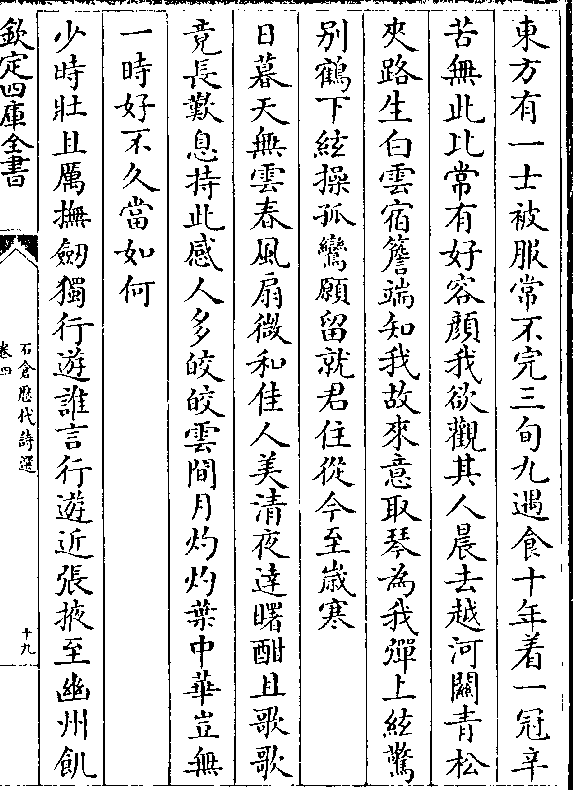 東方有一士被服常不完三旬九遇食十年着一冠辛
苦無此比常有好容顔我欲觀其人晨去越河關青松
夾路生白雲宿簷端知我故來意取琴為我彈上絃驚
别鶴下絃操孤鸞願留就君住從今至歳寒
日暮天無雲春風扇微和佳人美清夜達曙酣且歌歌
竟長歎息持此感人多皎皎雲間月灼灼葉中華豈無
一時好不久當如何
少時壯且厲撫劒獨行遊誰言行遊近張掖至幽州飢
欽定四庫全書
石倉歴代詩選
卷四
十九